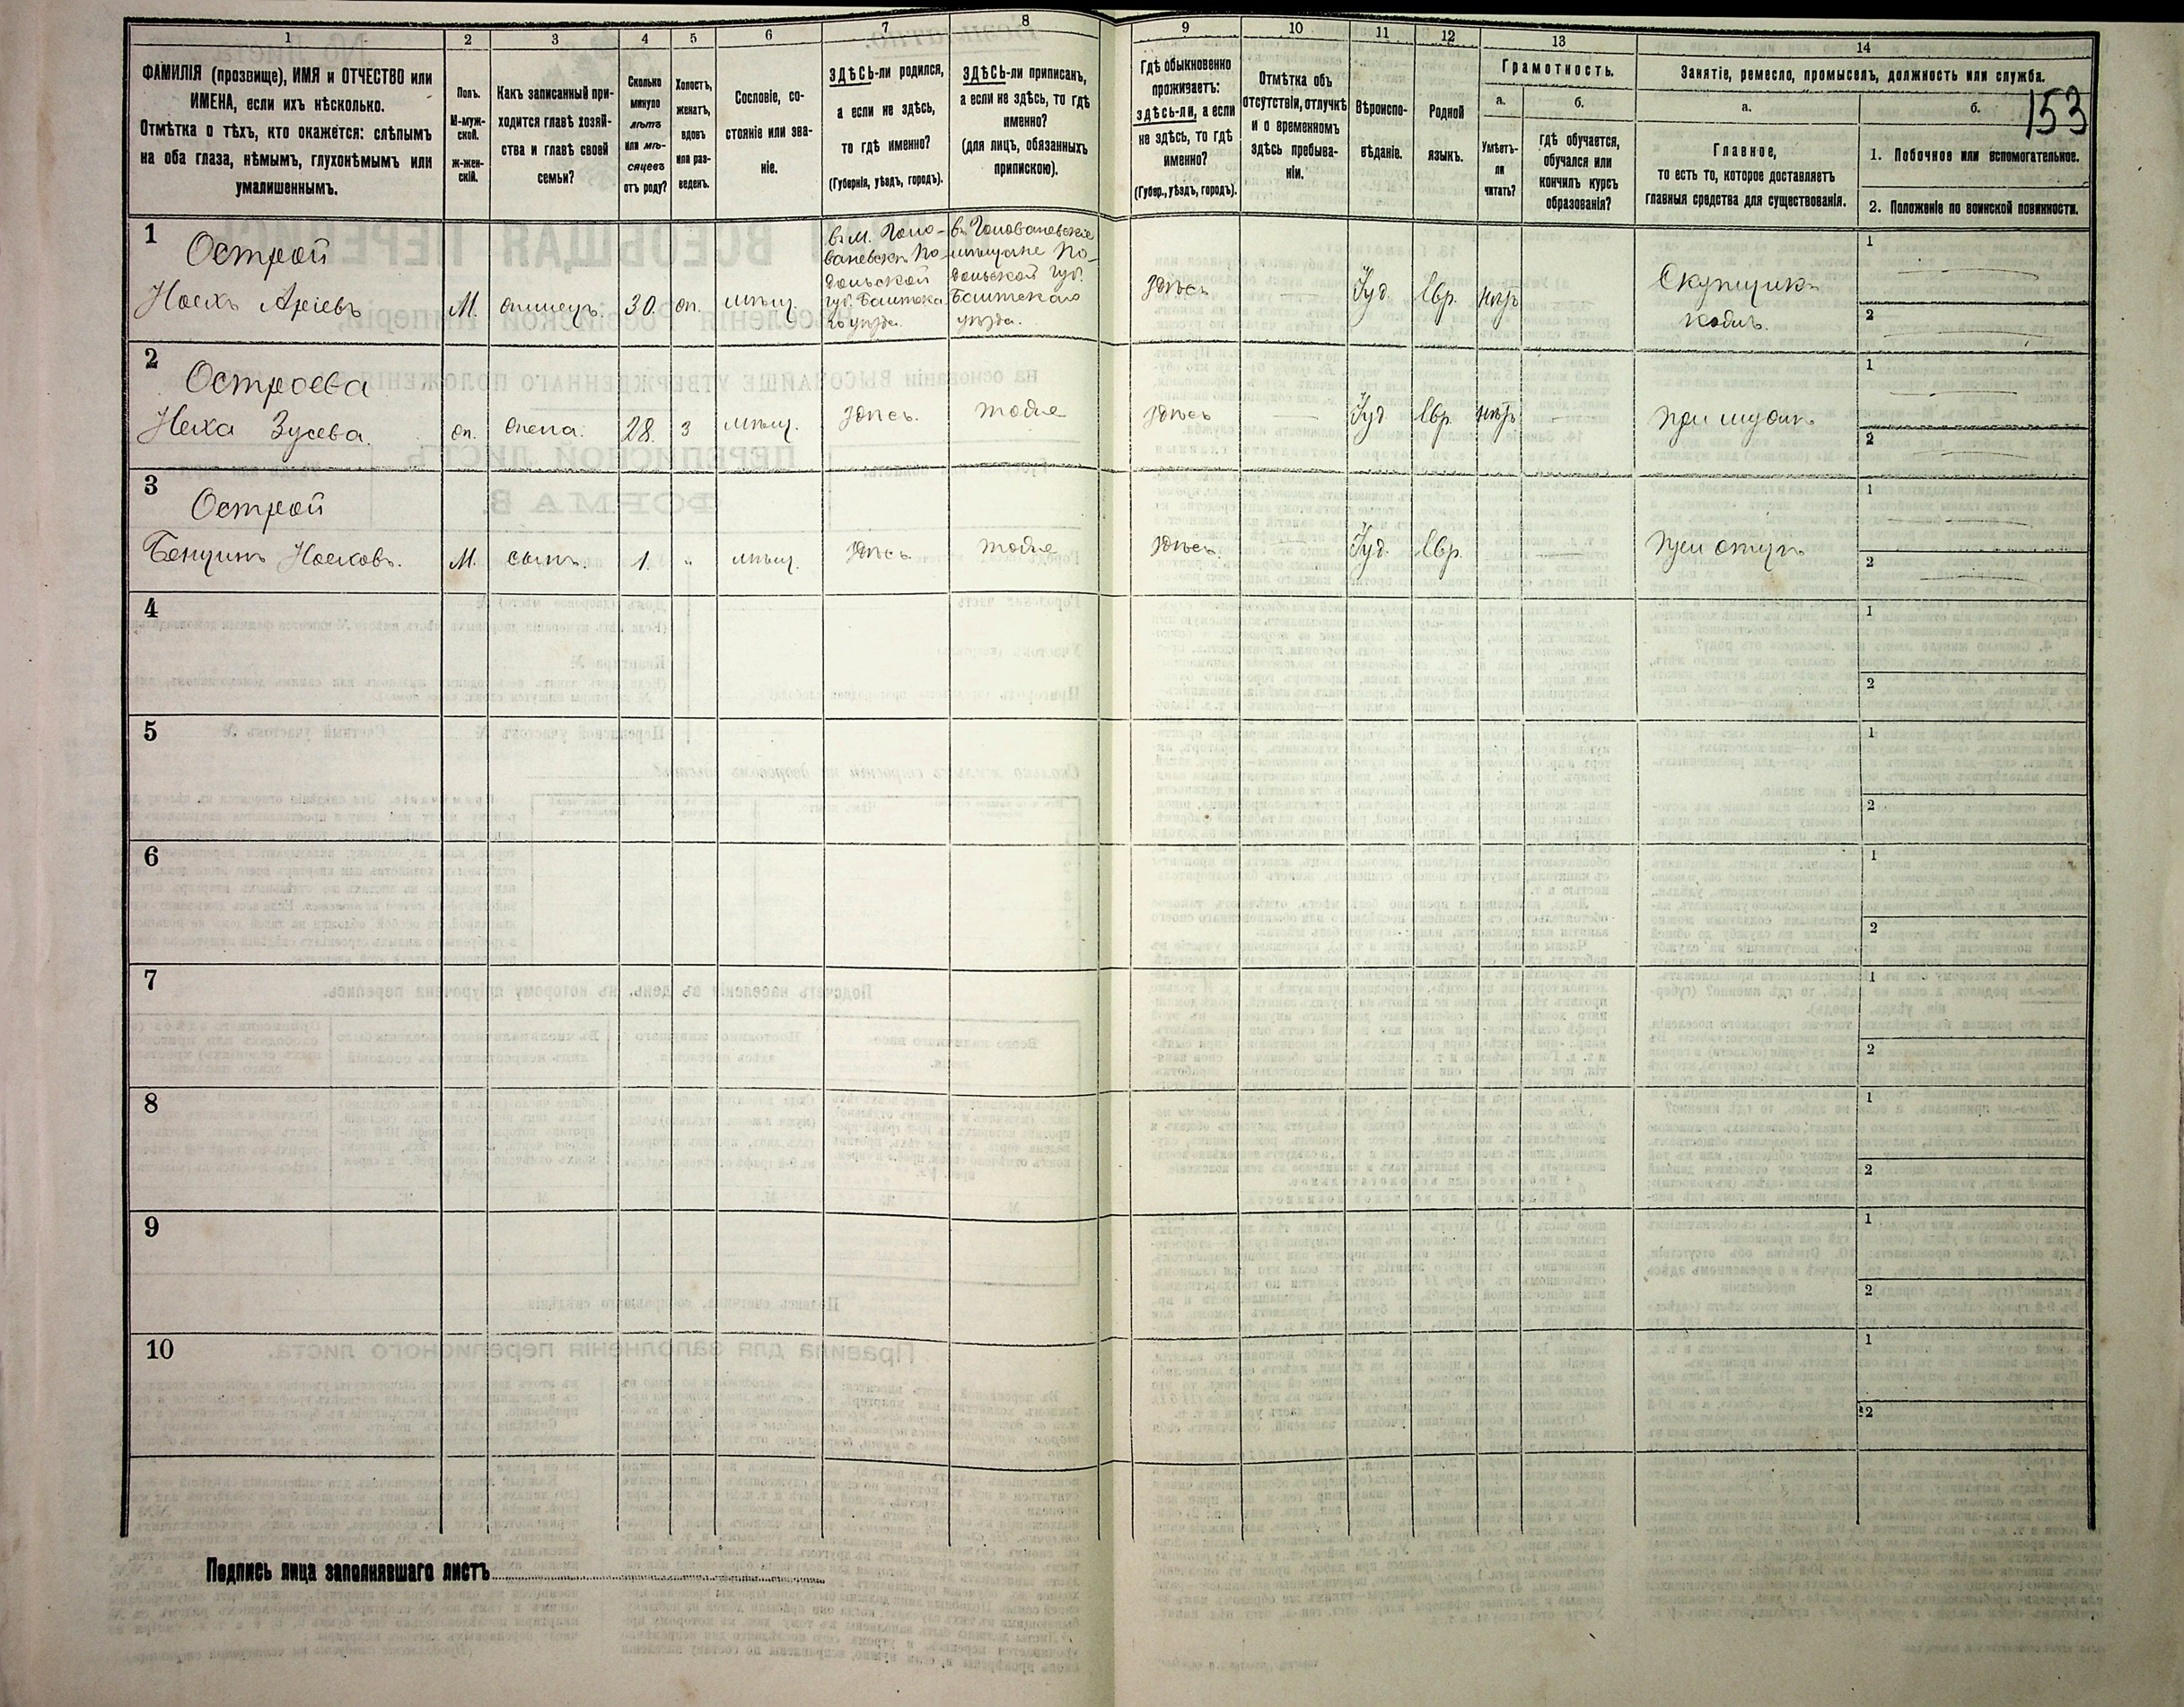 1 2 3 4 5 6 7 8 9 10 11 12 13 14
ФАМИЛІЯ (прозвище), ИМЯ и ОТЧЕСТВО или
ИМЕНА, если ихъ нѣсколько.
Отмѣтка о тѣхъ, кто окажется: слѣпымъ
на оба глаза, нѣмымъ, глухонѣмымъ или
умалишеннымъ.
Полъ.
М-муж-
ской.
ж-жен-
скій.
Какъ записанный при-
ходится главѣ хозяй-
ства и главѣ своей
семьи?
Сколько
минуло
лѣтъ
или мѣ-
сяцевъ
отъ роду?
Холостъ,
женатъ,
вдовъ
или раз-
веденъ.
Сословіе, со-
стояніе или зва-
ніе.
ЗДѢСЬ-ли родился,
а если не здѣсь,
то гдѣ именно?
(Губернія, уѣздъ, городъ).
ЗДѢСЬ-ли приписанъ,
а если не здѣсь, то гдѣ
именно?
(для лицъ, обязанныхъ
припискою).
Гдѣ обыкновенно
проживаетъ:
здѣсь-ли, а если
не здѣсь, то гдѣ
именно?
(Губер., уѣздъ, городъ).
Отмѣтка объ
отсутствіи, отлучкѣ
и о временномъ
здѣсь пребыва-
ніи.
Вѣроиспо-
вѣданіе.
Родной
языкъ.
Грамотность.
а.
Умѣетъ-
ли
читать?
б.
гдѣ обучается,
обучался или
кончилъ курсъ
образованія?
Занятіе, ремесло, промыселъ, должность или служба.
а.
Главное,
то есть то, которое доставляетъ
главныя средства для существованія.
б.
153
1. Побочное или вспомогательное.
2. Положеніе по воинской повинности.
1
Острой
Носихъ Аріевъ
М.
30.
мѣщ.
въ м. Голо-
ваневскъ По-
дольской
губ. Балтска
го уѣзда.
въ Голованевскіе
мѣщане По-
дольской губ.
Балтскаго
уѣзда.
здѣсь
Іуд.
Евр.
нѣтъ
Скупщикъ
1
2
2
Остроева
Неха Зусева.
жена.
28.
з
мѣщ.
здѣсь.
тоже
здѣсь
Іуд
Евр.
нѣтъ
при мужѣ
1
2
3
Острой
Бенционъ Носиховъ.
М.
сынъ.
1.
"
мѣщ.
здѣсь
тоже
здѣсь.
Іуд.
Евр.
при отцѣ
1
2
4
1
2
5
1
2
6
1
2
7
1
2
8
1
2
9
1
2
10
1
2
Подпись лица заполнявшаго листъ